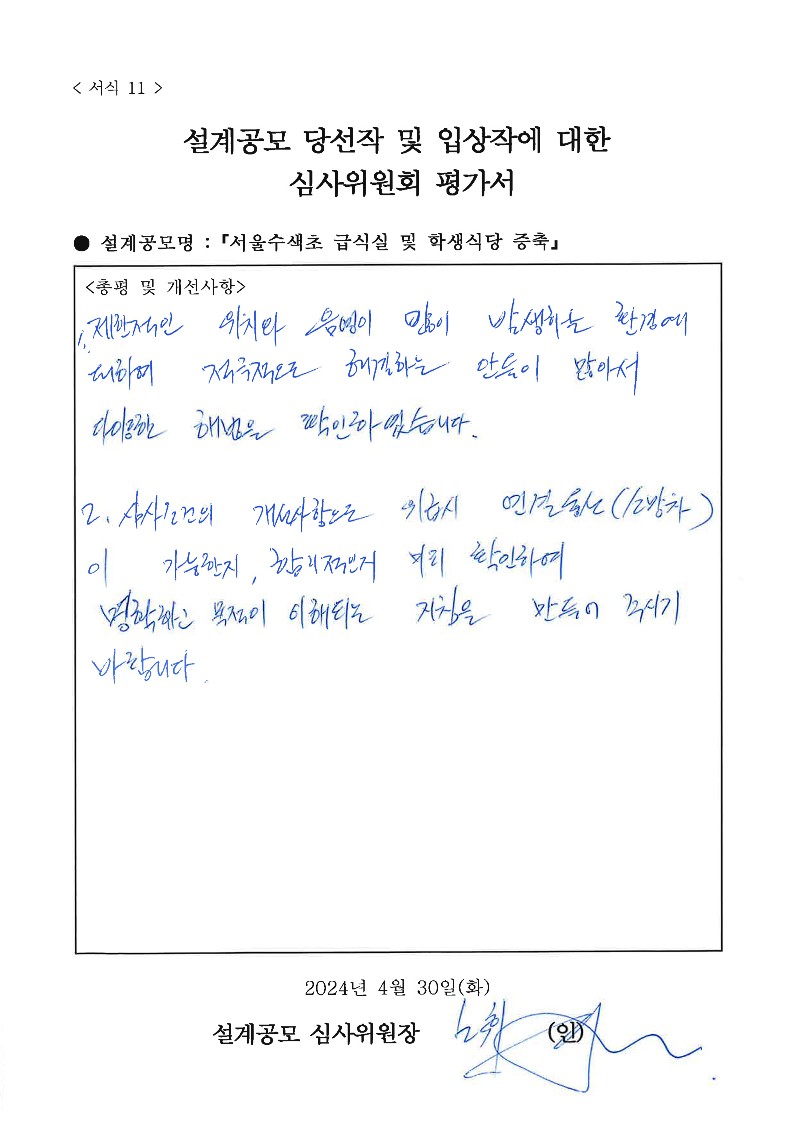 < 서식 11 >
설계공모 당선작 및 입상작에 대한
심사위원회 평가서
● 설계공모명 : 『서울수색초 급식실 및 학생식당 증축』
<총평 및 개선사항>
1. 제한적인 위치와 음영이 많이 발생하는 환경에
대하여 적극적으로 해결하는 안들이 많아서
다양한 해법을 확인하였습니다.
2. 심사조건의 개선사항으로 위급시 연결동선(소방차)
이 가능한지, 합리적인지 미리 확인하여
명확하고 목적이 이해되는 지침을 만들어 주시기
바랍니다.
2024년 4월 30일(화)
설계공모 심사위원장 (인)